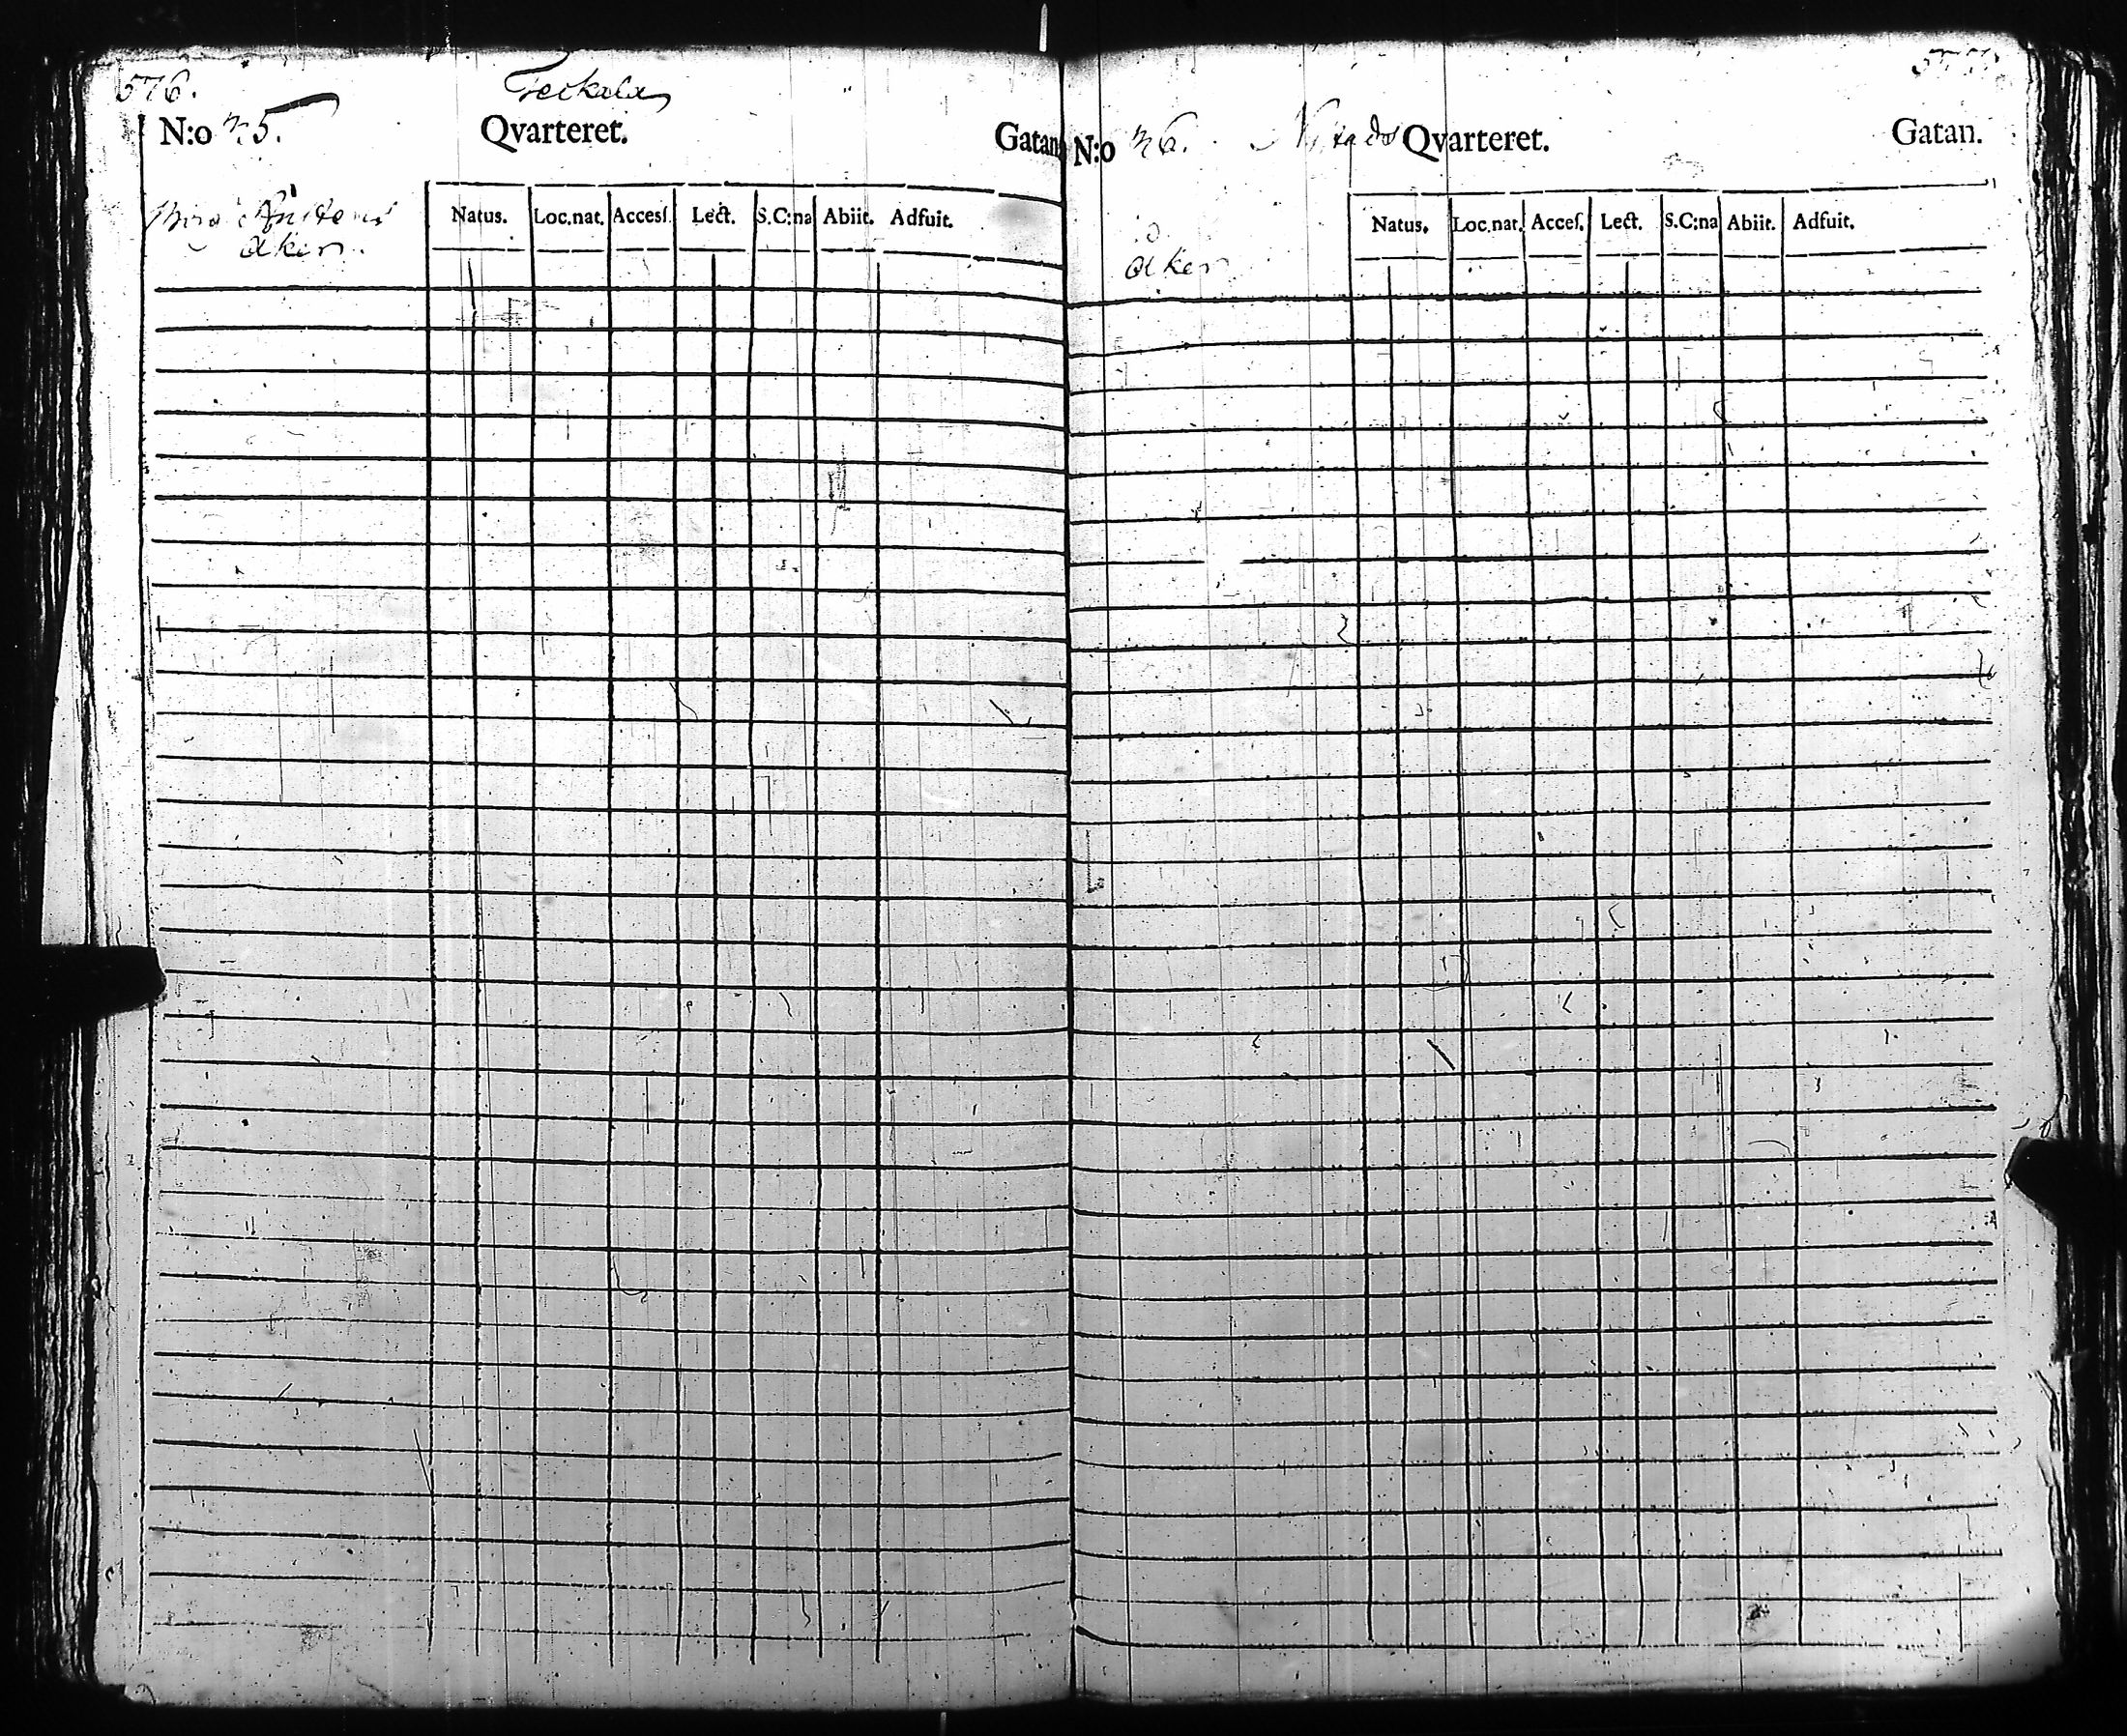 576.
N:o 75.
Qvarteret.
Gatan
åker.
Natus. Loc.nat. Accesſ. Lect. S.C:na Abiit. Adfuit.
N:o 76. Qvarteret. Gatan.
åker
Natus. Loc.nat. Acceſ. Lect. S.C:na Abiit. Adfuit.